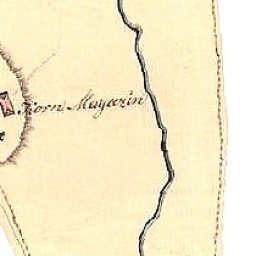 Korn Magazin